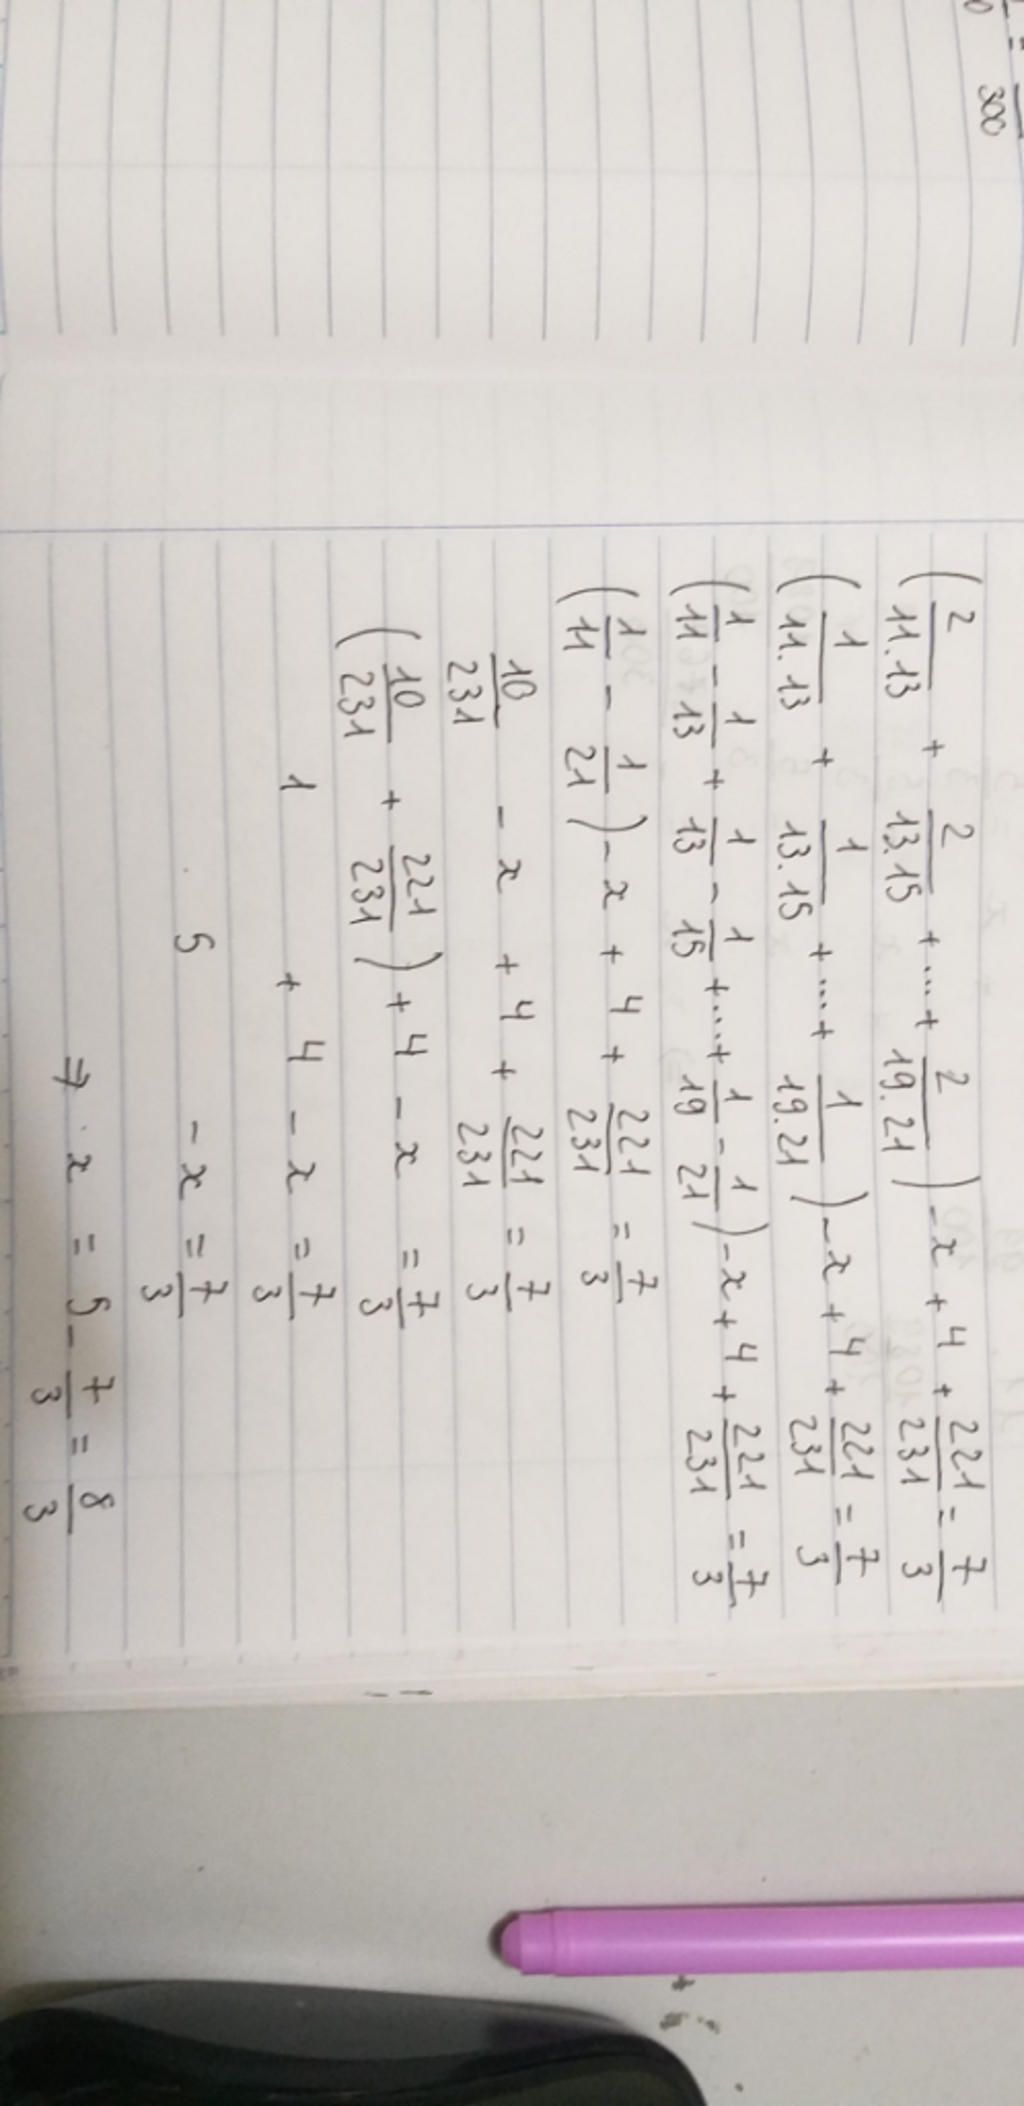 = 300
( 2/11.13 + 2/13.15 + ... + 2/19.21 ) - x + 4 + 221/231 = 7/3
( 1/11.13 + 1/13.15 + ... + 1/19.21 ) - x + 4 + 221/231 = 7/3
( 1/11 - 1/13 + 1/13 - 1/15 + ... + 1/19 - 1/21 ) - x + 4 + 221/231 = 7/3
( 1/11 - 1/21 ) - x + 4 + 221/231 = 7/3
10/231 - x + 4 + 221/231 = 7/3
( 10/231 + 221/231 ) + 4 - x = 7/3
1 + 4 - x = 7/3
5 - x = 7/3
⇒ x = 5 - 7/3 = 8/3